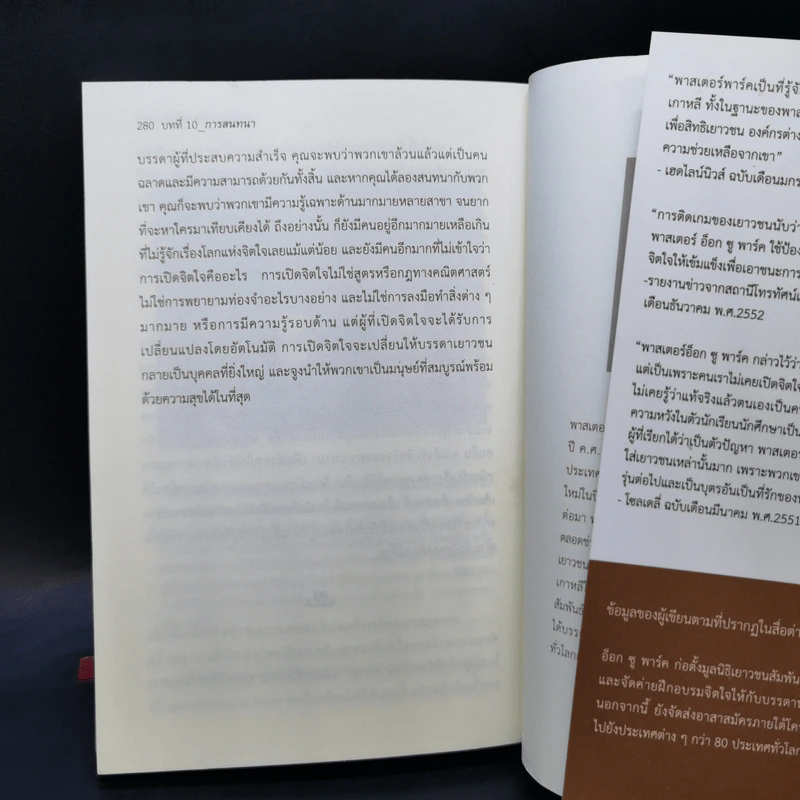 280 บทที่ 10_การสนทนา
บรรดาผู้ที่ประสบความสำเร็จ คุณจะพบว่าพวกเขาล้วนแล้วแต่เป็นคน
ฉลาดและมีความสามารถด้วยกันทั้งสิ้น และหากคุณได้ลองสนทนากับพวก
เขา คุณก็จะพบว่าพวกเขามีความรู้เฉพาะด้านมากมายหลายสาขา จนยาก
ที่จะหาใครมาเทียบเคียงได้ ถึงอย่างนั้น ก็ยังมีคนอยู่อีกมากมายเหลือเกิน
ที่ไม่รู้จักเรื่องโลกแห่งจิตใจเลยแม้แต่น้อย และยังมีคนอีกมากที่ไม่เข้าใจว่า
การเปิดจิตใจคืออะไร การเปิดจิตใจไม่ใช่สูตรหรือกฎทางคณิตศาสตร์
ไม่ใช่การพยายามท่องจำอะไรบางอย่าง และไม่ใช่การลงมือทำสิ่งต่าง ๆ
มากมาย หรือการมีความรู้รอบด้าน แต่ผู้ที่เปิดจิตใจจะได้รับการ
เปลี่ยนแปลงโดยอัตโนมัติ การเปิดจิตใจจะเปลี่ยนให้บรรดาเยาวชน
กลายเป็นบุคคลที่ยิ่งใหญ่ และจูงนำให้พวกเขาเป็นมนุษย์ที่สมบูรณ์พร้อม
ด้วยความสุขได้ในที่สุด
พาสเตอ
ปี ค.ศ.
ประเทศ
ใหม่ในปี
ต่อมา
ตลอดช่
เยาวชน
เกาหลีใ
สัมพันธ์
ได้บรร
ทั่วโลก
"พาสเตอร์พาร์คเป็นที่รู้จั
เกาหลี ทั้งในฐานะของพาส
เพื่อสิทธิเยาวชน องค์กรต่าง
ความช่วยเหลือจากเขา"
- เฮดไลน์นิวส์ ฉบับเดือนมกร
"การติดเกมของเยาวชนนับว่า
พาสเตอร์ อ็อก ซู พาร์ค ใช้ป้อง
จิตใจให้เข้มแข็งเพื่อเอาชนะการ
-รายงานข่าวจากสถานีโทรทัศน์เ
เดือนธันวาคม พ.ศ.2552
"พาสเตอร์อ็อก ซู พาร์ค กล่าวไว้ว่า
แต่เป็นเพราะคนเราไม่เคยเปิดจิตใจ
ไม่เคยรู้ว่าแท้จริงแล้วตนเองเป็นค
ความหวังในตัวนักเรียนนักศึกษาเป็น
ผู้ที่เรียกได้ว่าเป็นตัวปัญหา พาสเตอร์
ใส่เยาวชนเหล่านั้นมาก เพราะพวกเขา
รุ่นต่อไปและเป็นบุตรอันเป็นที่รักของ
- โซลเดลี่ ฉบับเดือนมีนาคม พ.ศ.2551
ข้อมูลของผู้เขียนตามที่ปรากฏในสื่อต่า
อ็อก ซู พาร์ค ก่อตั้งมูลนิธิเยาวชนสัมพัน
และจัดค่ายฝึกอบรมจิตใจให้กับบรรดา
นอกจากนี้ ยังจัดส่งอาสาสมัครภายใต้โคร
ไปยังประเทศต่าง ๆ กว่า 80 ประเทศทั่วโลก